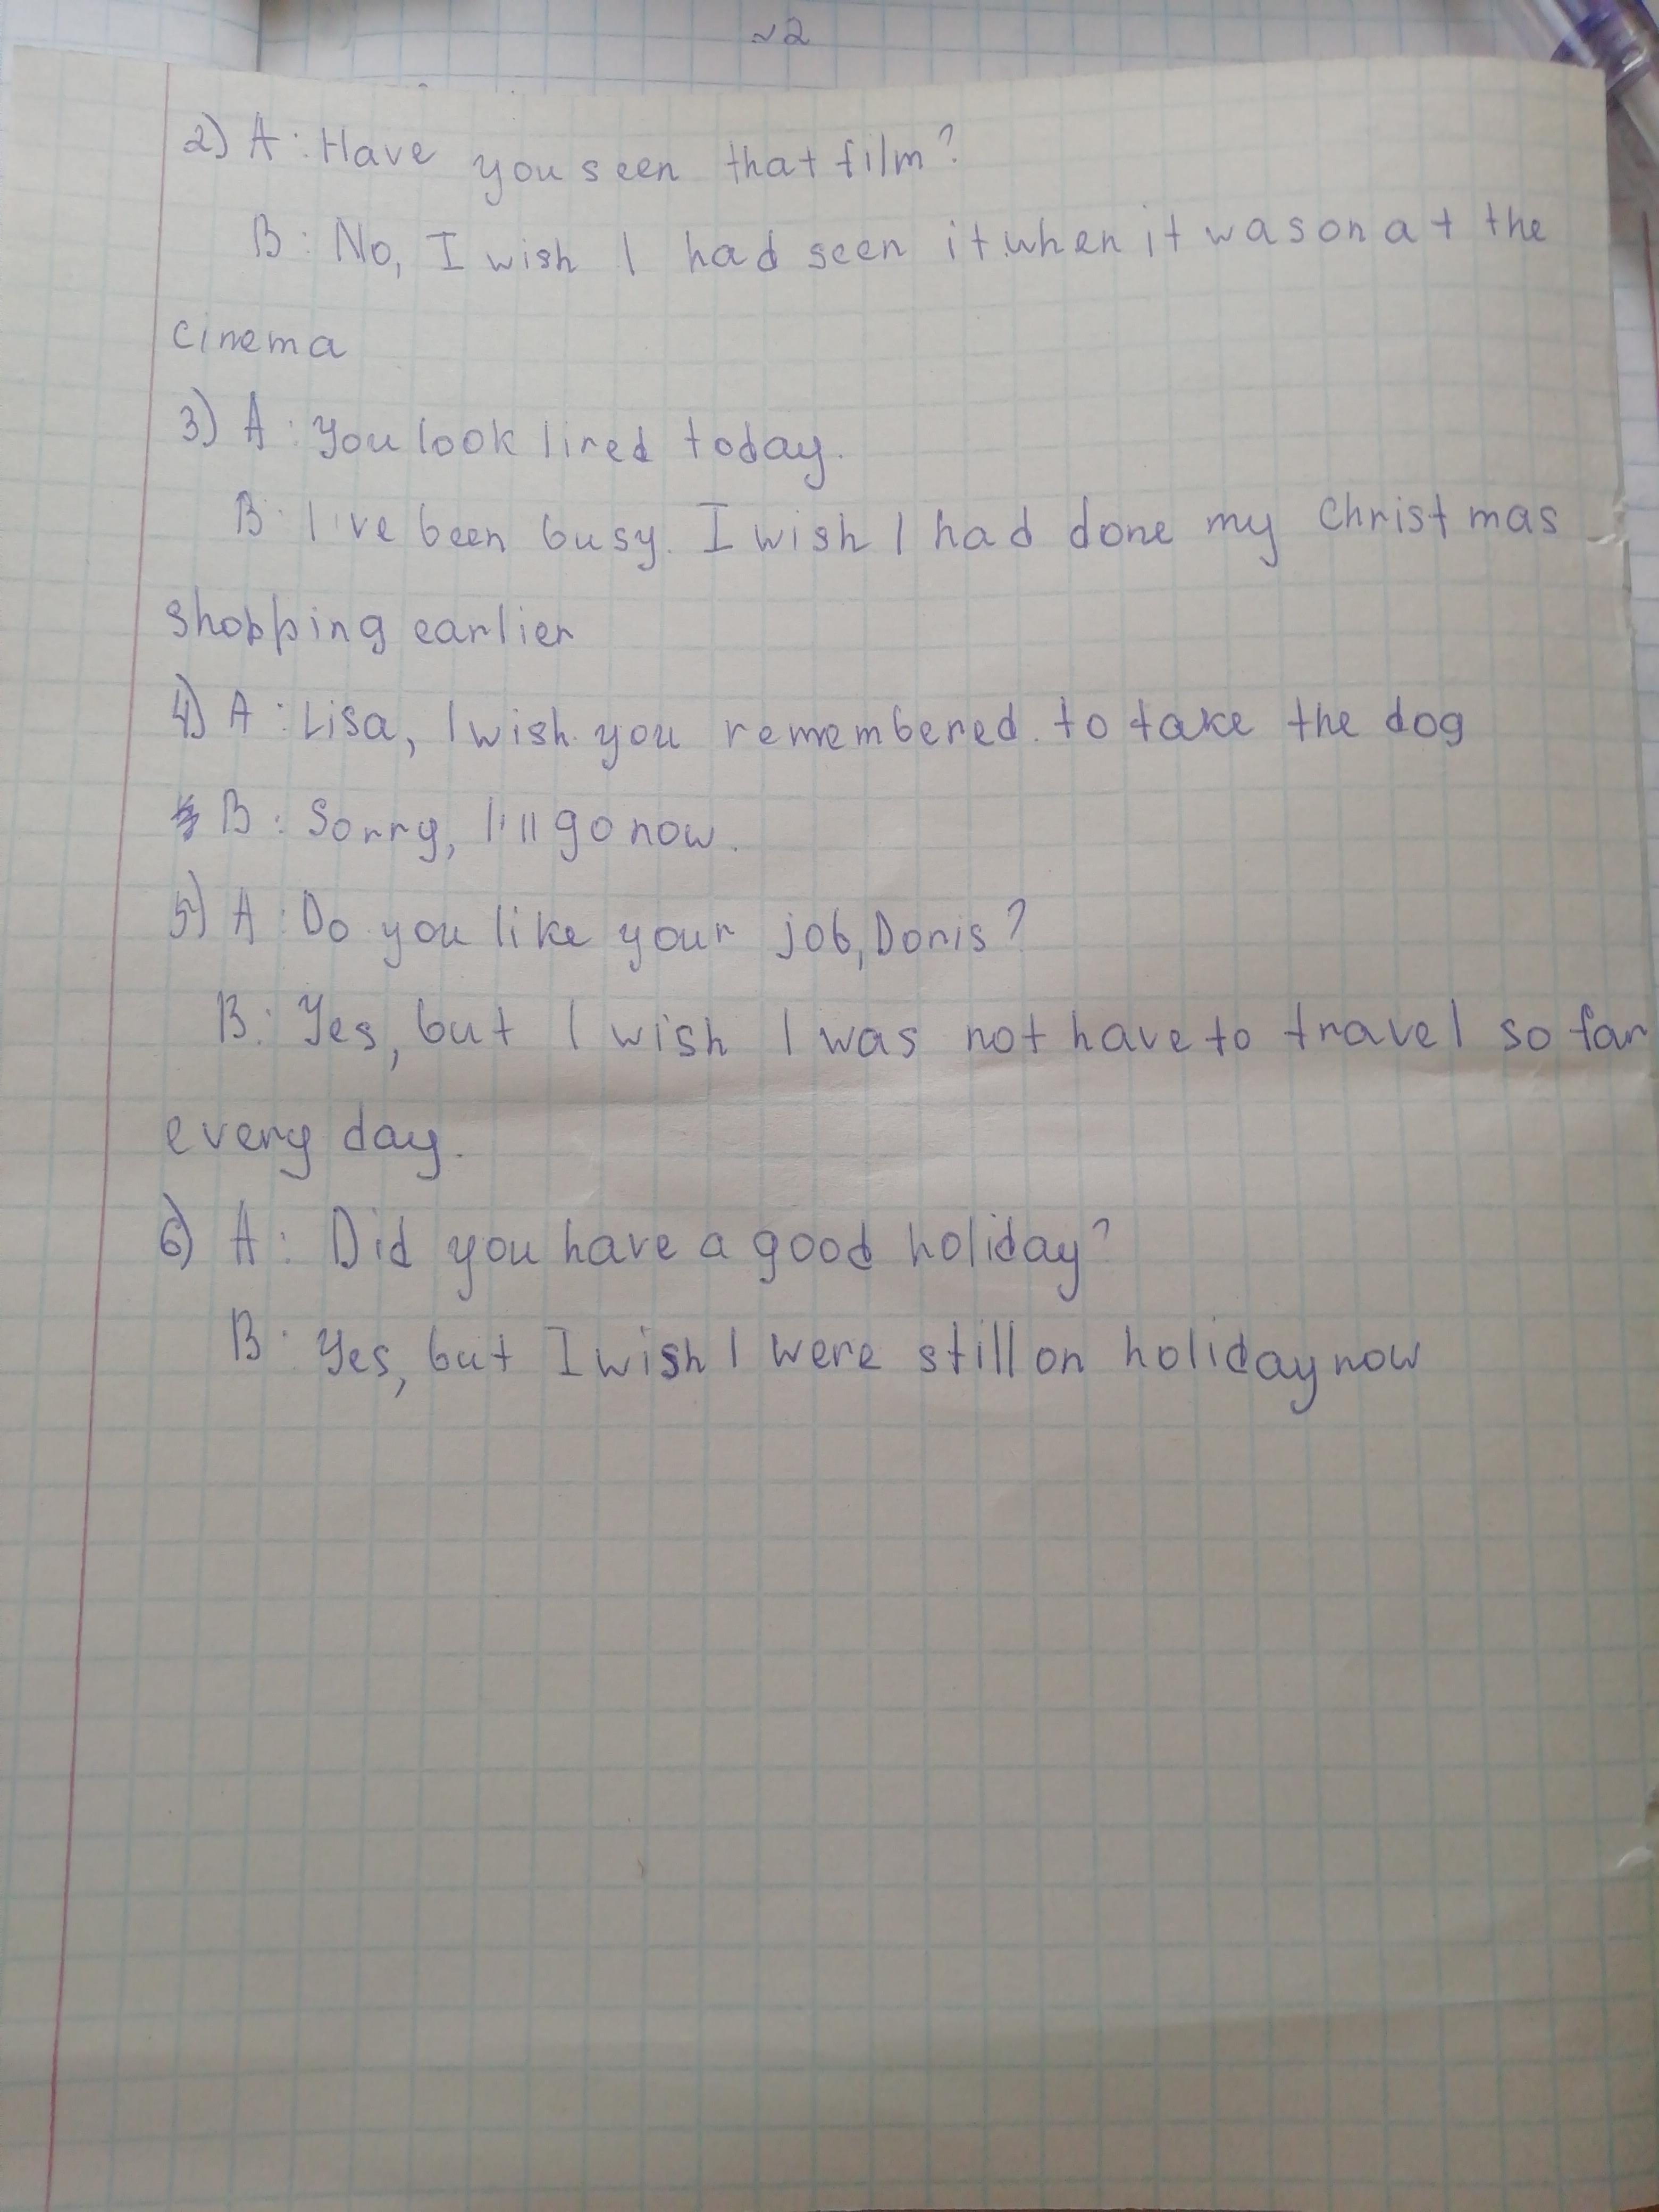 ~2
2) A: Have you seen that film?
B: No, I wish I had seen it when it was on at the
cinema
3) A: You look lired today.
B: I've been busy. I wish I had done my Christmas
shopping earlier
4) A: Lisa, I wish you remembered to take the dog
B: Sorry, I'll go now.
5) A: Do you like your job, Doris?
B: Yes, but I wish I was not have to travel so far
every day.
6) A: Did you have a good holiday?
B: Yes, but I wish I were still on holiday now